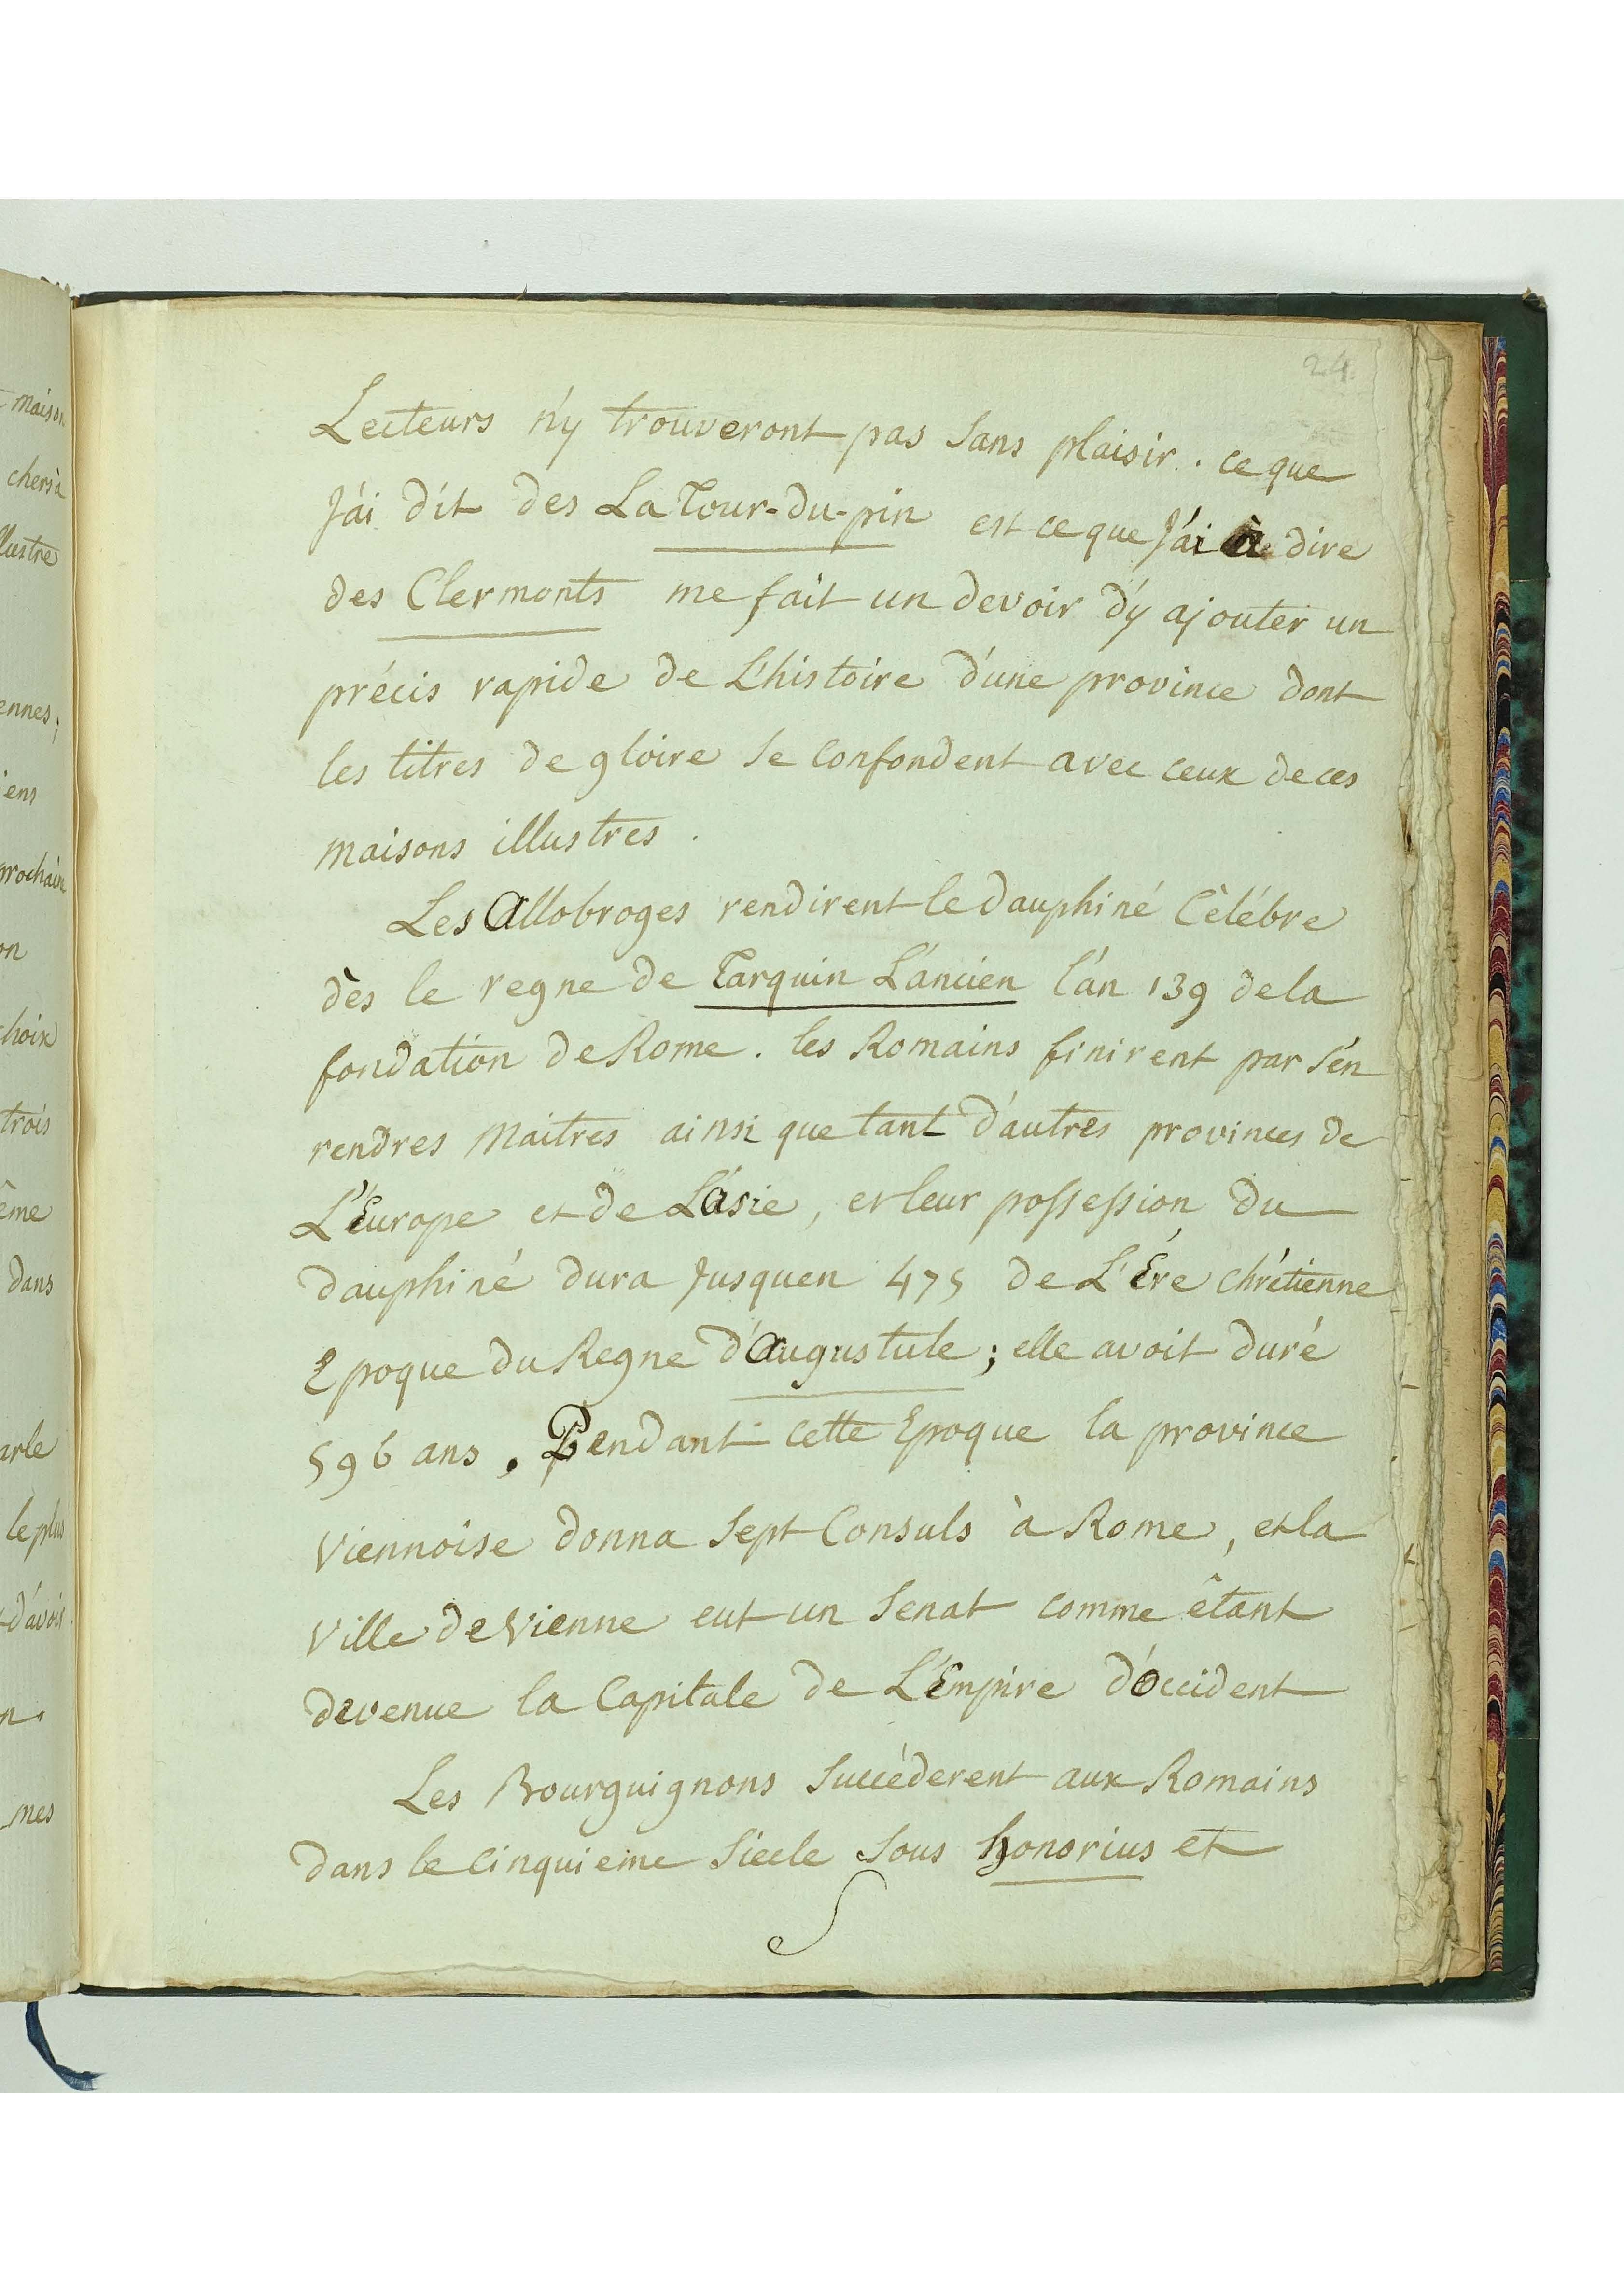 24.
Lecteurs n'y trouveront pas sans plaisir. ce que
J'ai dit des La Tour-du-pin est ce que J'ai à dire
des Clermonts me fait un devoir d'y ajouter un
précis rapide de L'histoire d'une province dont
les titres de gloire se confondent avec ceux de ces
maisons illustres.
Les Allobroges rendirent le dauphiné Célébre
dès le regne de Tarquin L'ancien l'an 139 de la
fondation de Rome. les Romains finirent par s'en
rendres Maitres ainsi que tant d'autres provinces de
L'Europe et de L'asie, et leur possession du
dauphiné dura Jusquen 475 de L'Ére chrétienne
Epoque du Regne d'Augustule; elle avoit duré
596 ans. Pendant cette Epoque la province
Viennoise donna Sept Consuls à Rome, et la
Ville de Vienne eut un Senat comme êtant
devenue la Capitale de L'Empire d'Occident
Les Bourguignons Succéderent aux Romains
dans le Cinquieme Siecle Sous honorius et
maison
chers à
llustre
ennes;
iens
prochain
on
choix
trois
ême
dans
arle
le plus
d'avoir
n.
mes